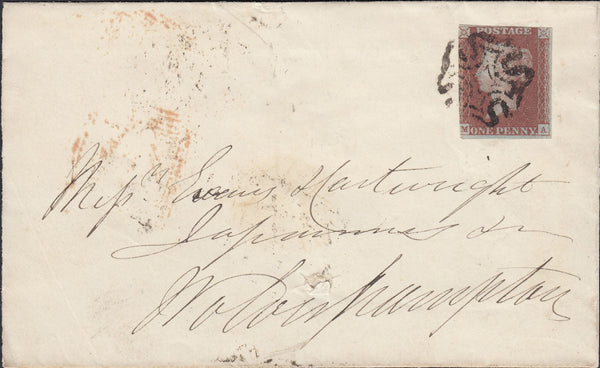 POSTAGE
M A
ONE PENNY
Messrs Evans Hartwright
Japanners &c
Wolverhampton